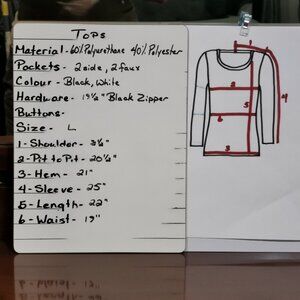 Tops
Material - 60% Polyurethane 40% Polyester
Pockets - 2 side, 2 faux
Colour - Black, White
Hardware - 19½" Black Zipper
Buttons -
Size - L
1 - Shoulder - 3½"
2 - Pit to Pit - 20½"
3 - Hem - 21"
4 - Sleeve - 25"
5 - Length - 22"
6 - Waist - 19"
2
5
6
3
4